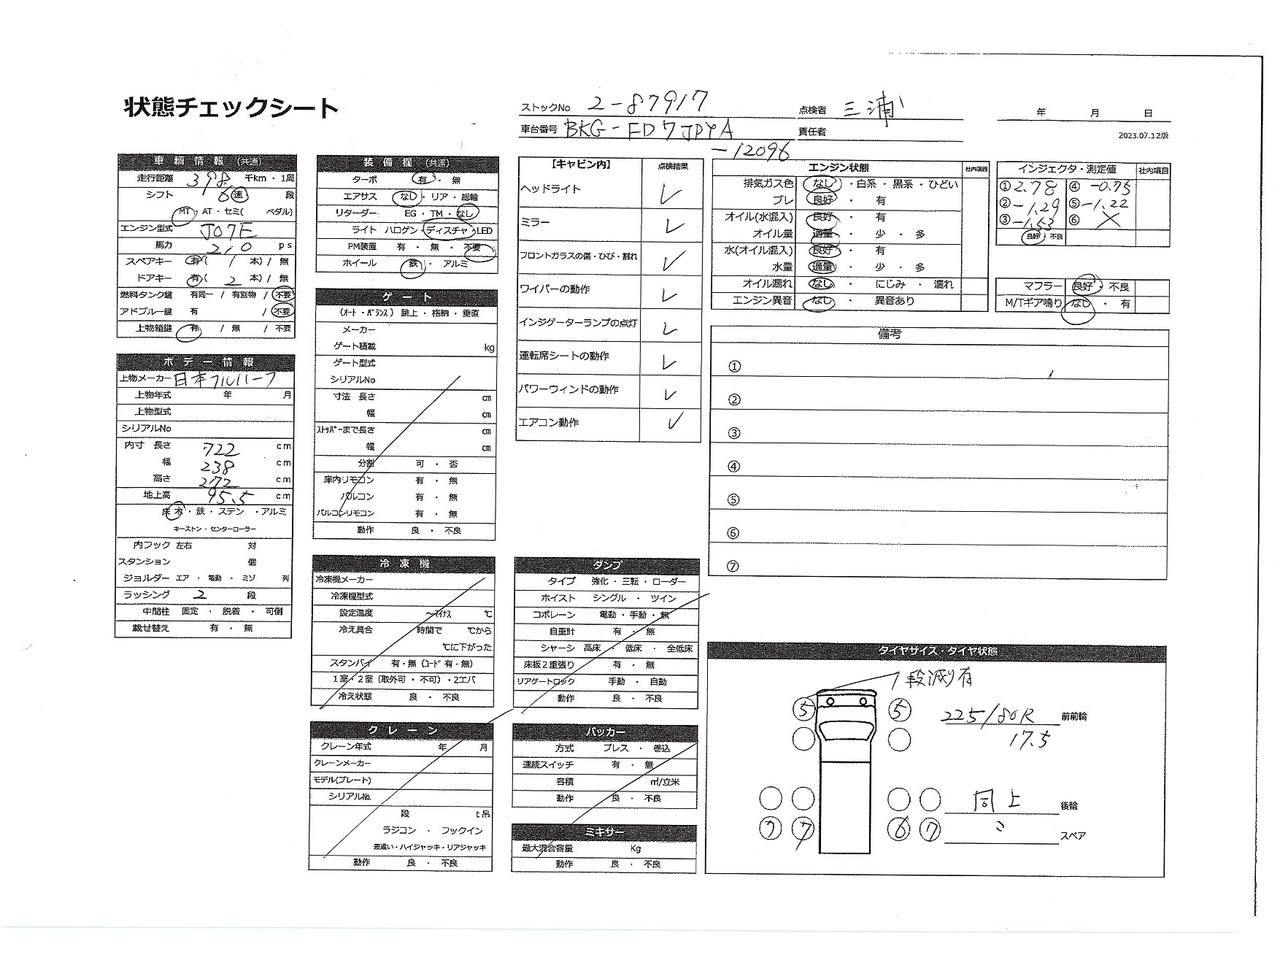 状態チェックシート
ストックNo 2-87917
車台番号 BKG-FD7JDYA
-12096
点検者 三浦
責任者
年 月 日
2023.07.12版
車輌情報 (共通)
走行距離 398 千km・1周
シフト 6速 段
MT・AT・セミ( ペダル)
エンジン型式 J07E
馬力 210 ps
スペアキー 有( 1 本) / 無
ドアキー 有( 2 本) / 無
燃料タンク鍵 有同一 / 有別物 / 不要
アドブルー鍵 有 / 不要
上物箱鍵 有 / 無 / 不要
ボデー情報
上物メーカー 日本フルハーフ
上物年式 年 月
上物型式
シリアルNo
内寸 長さ 722 cm
幅 238 cm
高さ 272 cm
地上高 95.5 cm
床 木・鉄・ステン・アルミ
キーストン・センターローラー
内フック 左右 対
スタンション 個
ジョルダー エア・電動・ミゾ 列
ラッシング 2 段
中間柱 固定・脱着・可倒
載せ替え 有・無
装備欄 (共通)
ターボ 有・無
エアサス なし・リア・総輪
リターダー EG・TM・なし
ライト ハロゲン・ディスチャ・LED
PM装置 有・無・不要
ホイール 鉄・アルミ
ゲート
(オート・バランス) 跳上・格納・垂直
メーカー
ゲート積載 kg
ゲート型式
シリアルNo
寸法 長さ cm
幅 cm
ストッパーまで長さ cm
幅 cm
分割 可・否
庫内リモコン 有・無
バルコン 有・無
バルコンリモコン 有・無
動作 良・不良
冷凍機
冷凍機メーカー
冷凍機型式
設定温度 ～マイナス ℃
冷え具合 時間で ℃から
℃に下がった
スタンバイ 有・無 (コード 有・無)
1室・2室 (取外可・不可)・2エバ
冷え状態 良・不良
クレーン
クレーン年式 年 月
クレーンメーカー
モデル(プレート)
シリアル№
段 t吊
ラジコン・フックイン
差違い・ハイジャッキ・リアジャッキ
動作 良・不良
【キャビン内】 点検結果
ヘッドライト ✓
ミラー ✓
フロントガラスの傷・ひび・割れ ✓
ワイパーの動作 ✓
インジゲーターランプの点灯 ✓
運転席シートの動作 ✓
パワーウィンドの動作 ✓
エアコン動作 ✓
ダンプ
タイプ 強化・三転・ローダー
ホイスト シングル・ツイン
コボレーン 電動・手動・無
自重計 有・無
シャーシ 高床・低床・全低床
床板2重張り 有・無
リアゲートロック 手動・自動
動作 良・不良
パッカー
方式 プレス・巻込
連続スイッチ 有・無
容積 ㎥/立米
動作 良・不良
ミキサー
最大混合容量 Kg
動作 良・不良
エンジン状態 社内項目
排気ガス色 なし・白系・黒系・ひどい
ブレ 良好・有
オイル(水混入) 良好・有
オイル量 適量・少・多
水(オイル混入) 良好・有
水量 適量・少・多
オイル漏れ なし・にじみ・濡れ
エンジン異音 なし・異音あり
インジェクタ・測定値 社内項目
①2.78 ④-0.75
②-1.29 ⑤-1.22
③-1.53 ⑥ ×
良好・不良
マフラー 良好・不良
M/Tギア鳴り なし・有
備考
①
②
③
④
⑤
⑥
⑦
タイヤサイズ・タイヤ状態
段減り有
5 5
225/80R 前前輪
17.5
同上 後輪
7 7 6 7 スペア